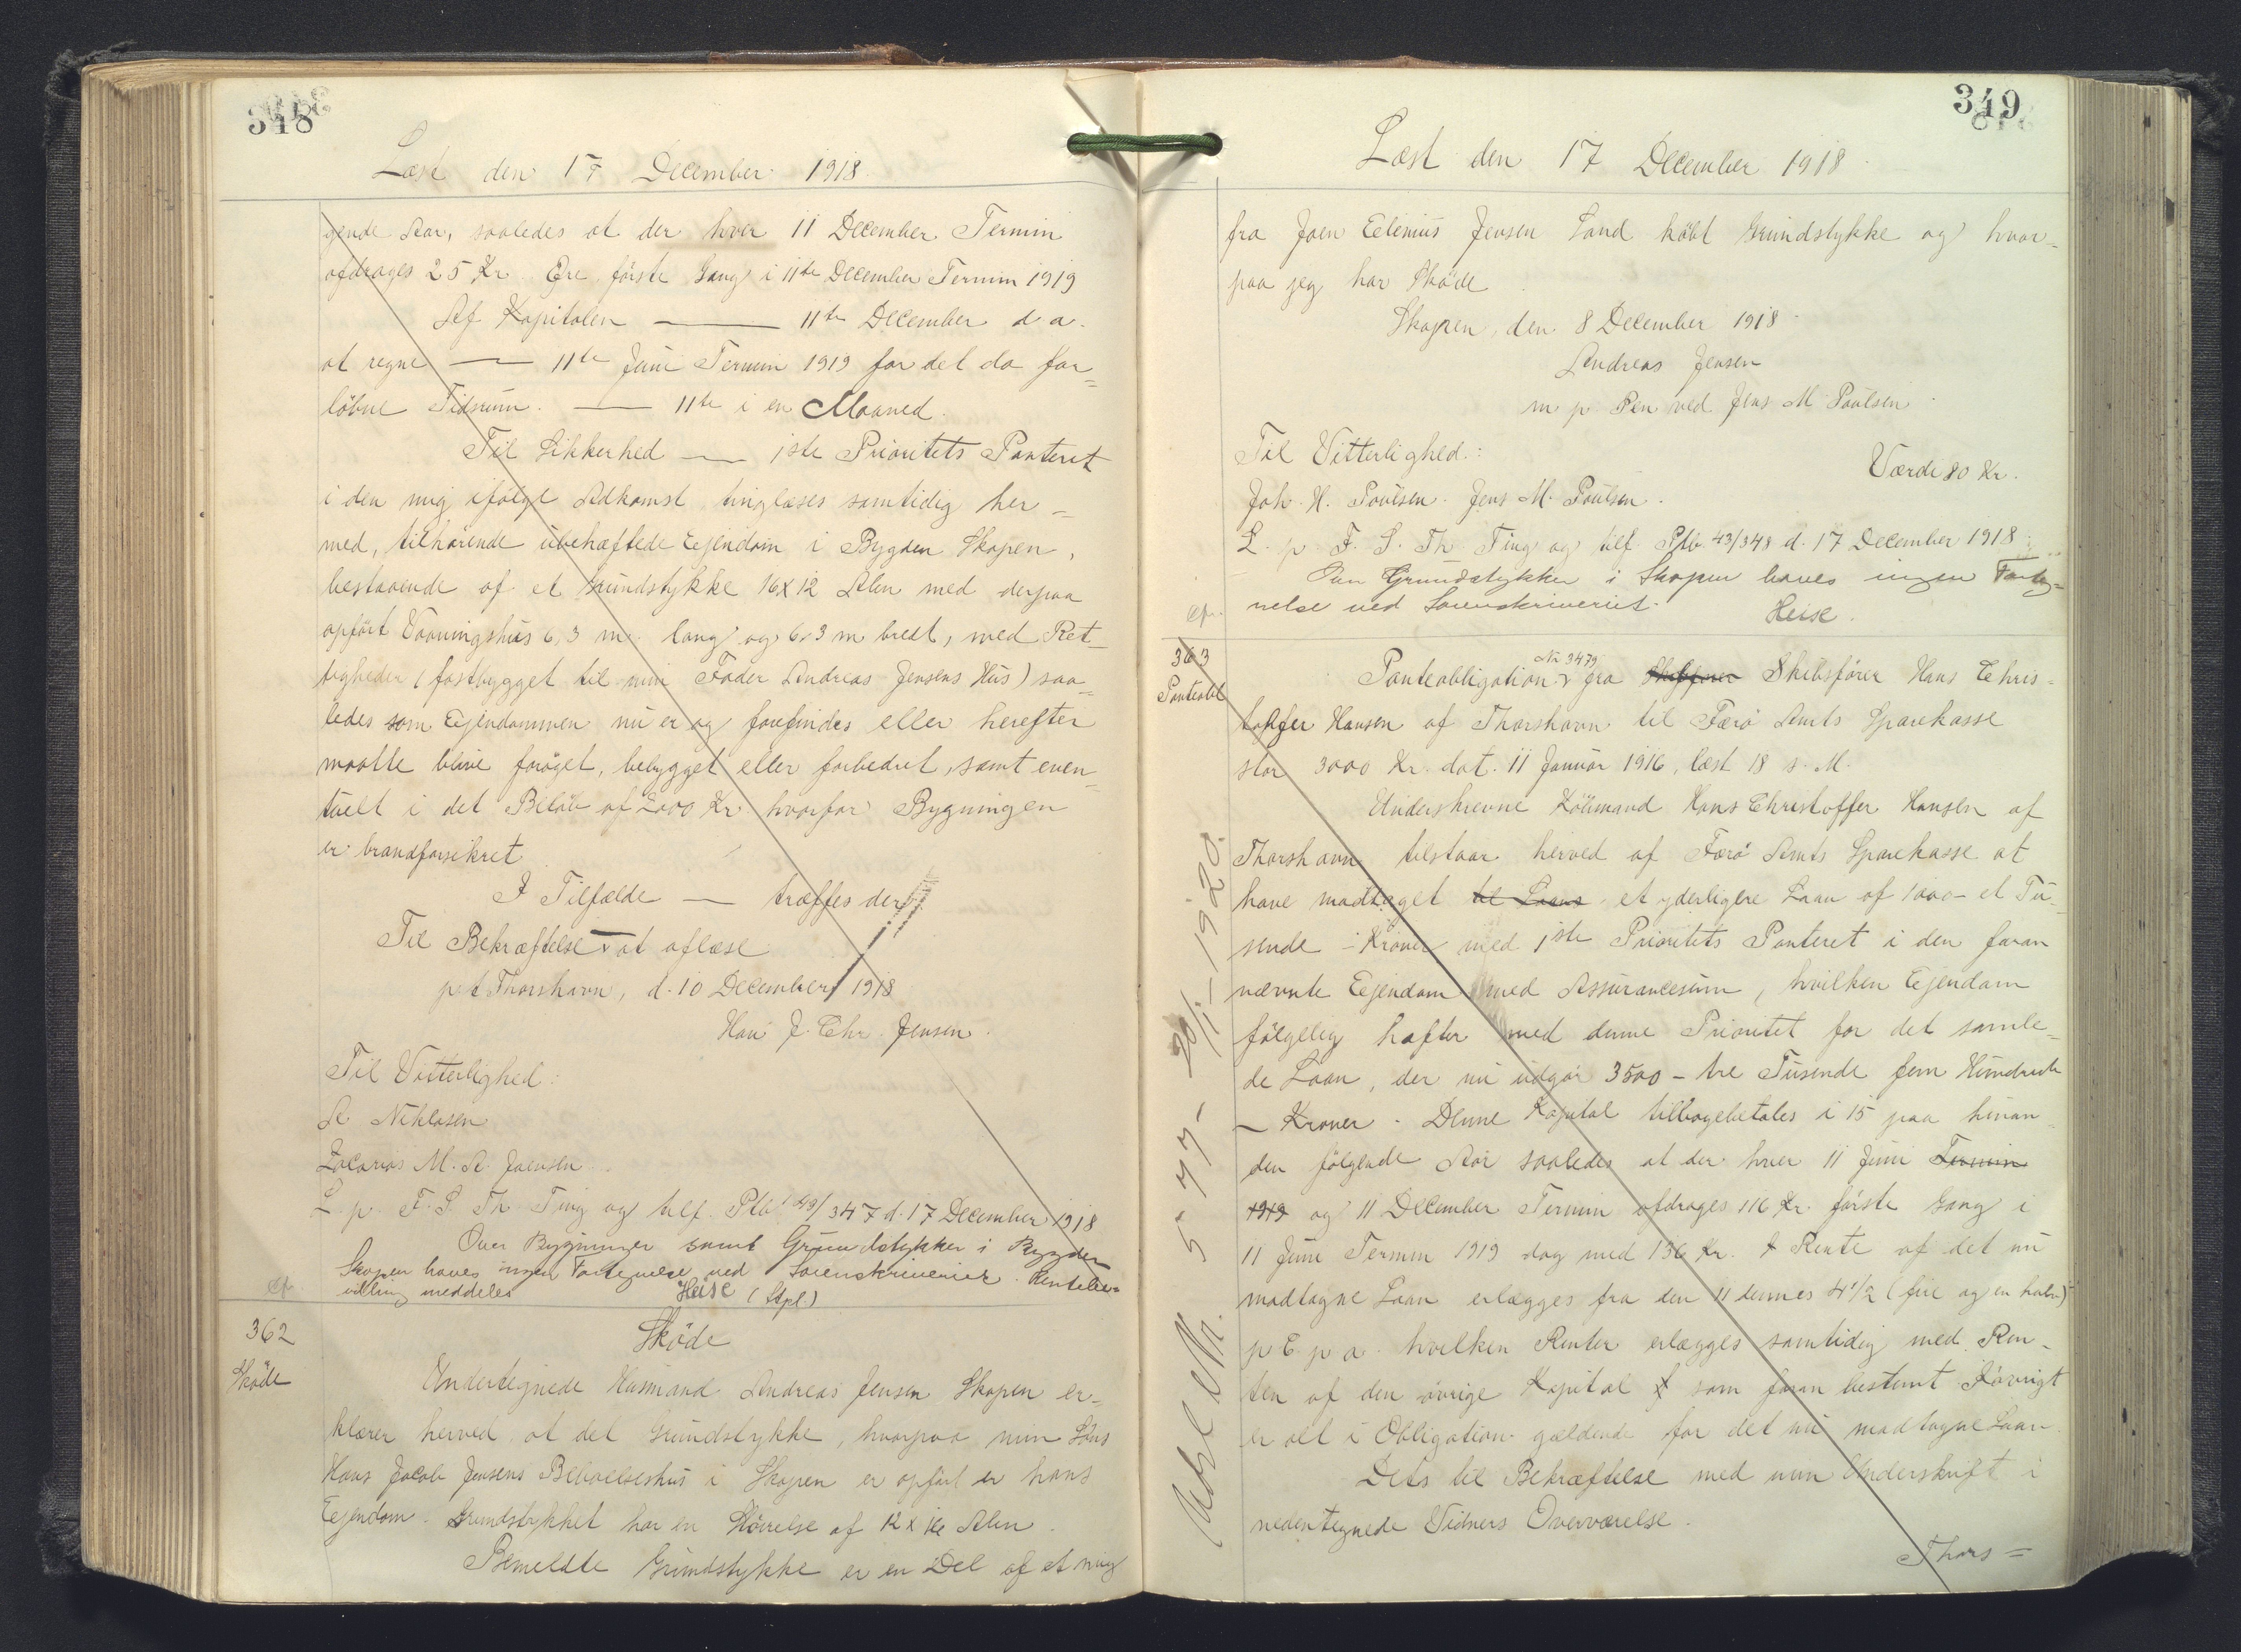 348
Læst den 17 December 1918.
gende Aar, saaledes at der hver 11 December Termin
afdrages 25 Kr. Øre første Gang i 11te December Termin 1919
Af Kapitalen — 11te December d a.
at regne — 11te Juni Termin 1919 for det da for=
løbne Tidsrum. — 11te i en Maaned.
Til Sikkerhed — 1ste Prioritets Panteret
i den mig ifølge Adkomst, tinglæses samtidig her-
med, tilhørende ubehæftede Ejendom i Bygden Skopen,
bestaaende af et Grundstykke 16 x 12 Alen med derpaa
opført Vaaningshus 6,3 m. lang og 6,3 m bredt, med Ret-
tigheder (fastbygget til min Fader Andreas Jensens Hus) saa=
ledes som Ejendommen nu er og forefindes eller herefter
maatte blive forøget, bebygget eller forbedret, samt even=
tuelt i det Beløb af 2000 Kr. hvorfor Bygningen
er brandforsikret
I Tilfælde — træffes der
Til Bekræftelse at aflæse
pt Thorshavn, d. 10 December 1918
Han J. Chr. Jensen.
Til Vitterlighed:
A Niklasen
Zacarias M. A. Joensen.
L. p. F. S. Th. Ting og tilf. Ptb. 43/347 d. 17 December 1918
Over Bygninger samt Grundstykker i Bygden
Skopen haves ingen Fortegnelse ved Sorenskriveriet. Rentebe=
villing meddeles Heise (Stpl.)
cf.
362
Skøde
Skøde
Undertegnede Husmand Andreas Jensen Skopen er-
klærer herved at det Grundstykke, hvorpaa min Søns
Hans Jacob Jensens Beboelseshus i Skopen er opført er hans
Ejendom. Grundstykket har en Størrelse af 12 x 16 Alen.
Bemeldte Grundstykke er en Del af et mig
349
Læst den 17 December 1918.
fra Joen Elenius Jensen Sand købt Grundstykke og hvor-
paa jeg har Skøde.
Skopen, den 8 December 1918.
Andreas Jensen
m. p. Pen ved Jens M Poulsen
Til Vitterlighed:
Værdi 80 Kr.
Joh. H. Poulsen. Jens M. Poulsen.
L. p. F. S. Th Ting og tilf. Ptb. 43/348 d. 17 December 1918:
Over Grundstykker i Skopen haves ingen Forteg=
nelse ved Sorenskriveriet.
Heise.
cfr.
363
Panteobl
Panteobligation Nr 3479 fra Skibsfører Hans Chris-
toffer Hansen af Thorshavn til Færø Amts Sparekasse
stor 3000 Kr. dat. 11 Januar 1916, læst 18 s. M.
Underskrevne Købmand Hans Christoffer Hansen af
Thorshavn tilstaar herved af Færø Amts Sparekasse at
have modtaget til Laans et yderligere Laan af 1000 – et Tu-
sende – Kroner med 1ste Prioritets Panteret i den foran
nævnte Ejendom med Assurancesum, hvilken Ejendom
følgelig hæfter med denne Prioritet for det samle-
de Laan, der nu udgør 3500 – tre Tusende fem Hundrede
– Kroner. Denne Kapital tilbagebetales i 15 paa hinan-
den følgende Aar saaledes at der hver 11 Juni Termin
1919 og 11 December Termin afdrages 116 Kr. første Gang i
11 Juni Termin 1919 dog med 136 Kr. I Rente af det nu
modtagne Laan erlægges fra den 11 dennes 4 1/2 (fire og en halv)
p C. p a. hvilken Renter erlægges samtidig med Ren-
ten af den øvrige Kapital som foran bestemt. Iøvrigt
er alt i Obligation gældende for det nu modtagne Laan.
Dets til Bekræftelse med min Underskrift i
nedentegnede Vidners Overværelse.
Thors=
20/1–1920.